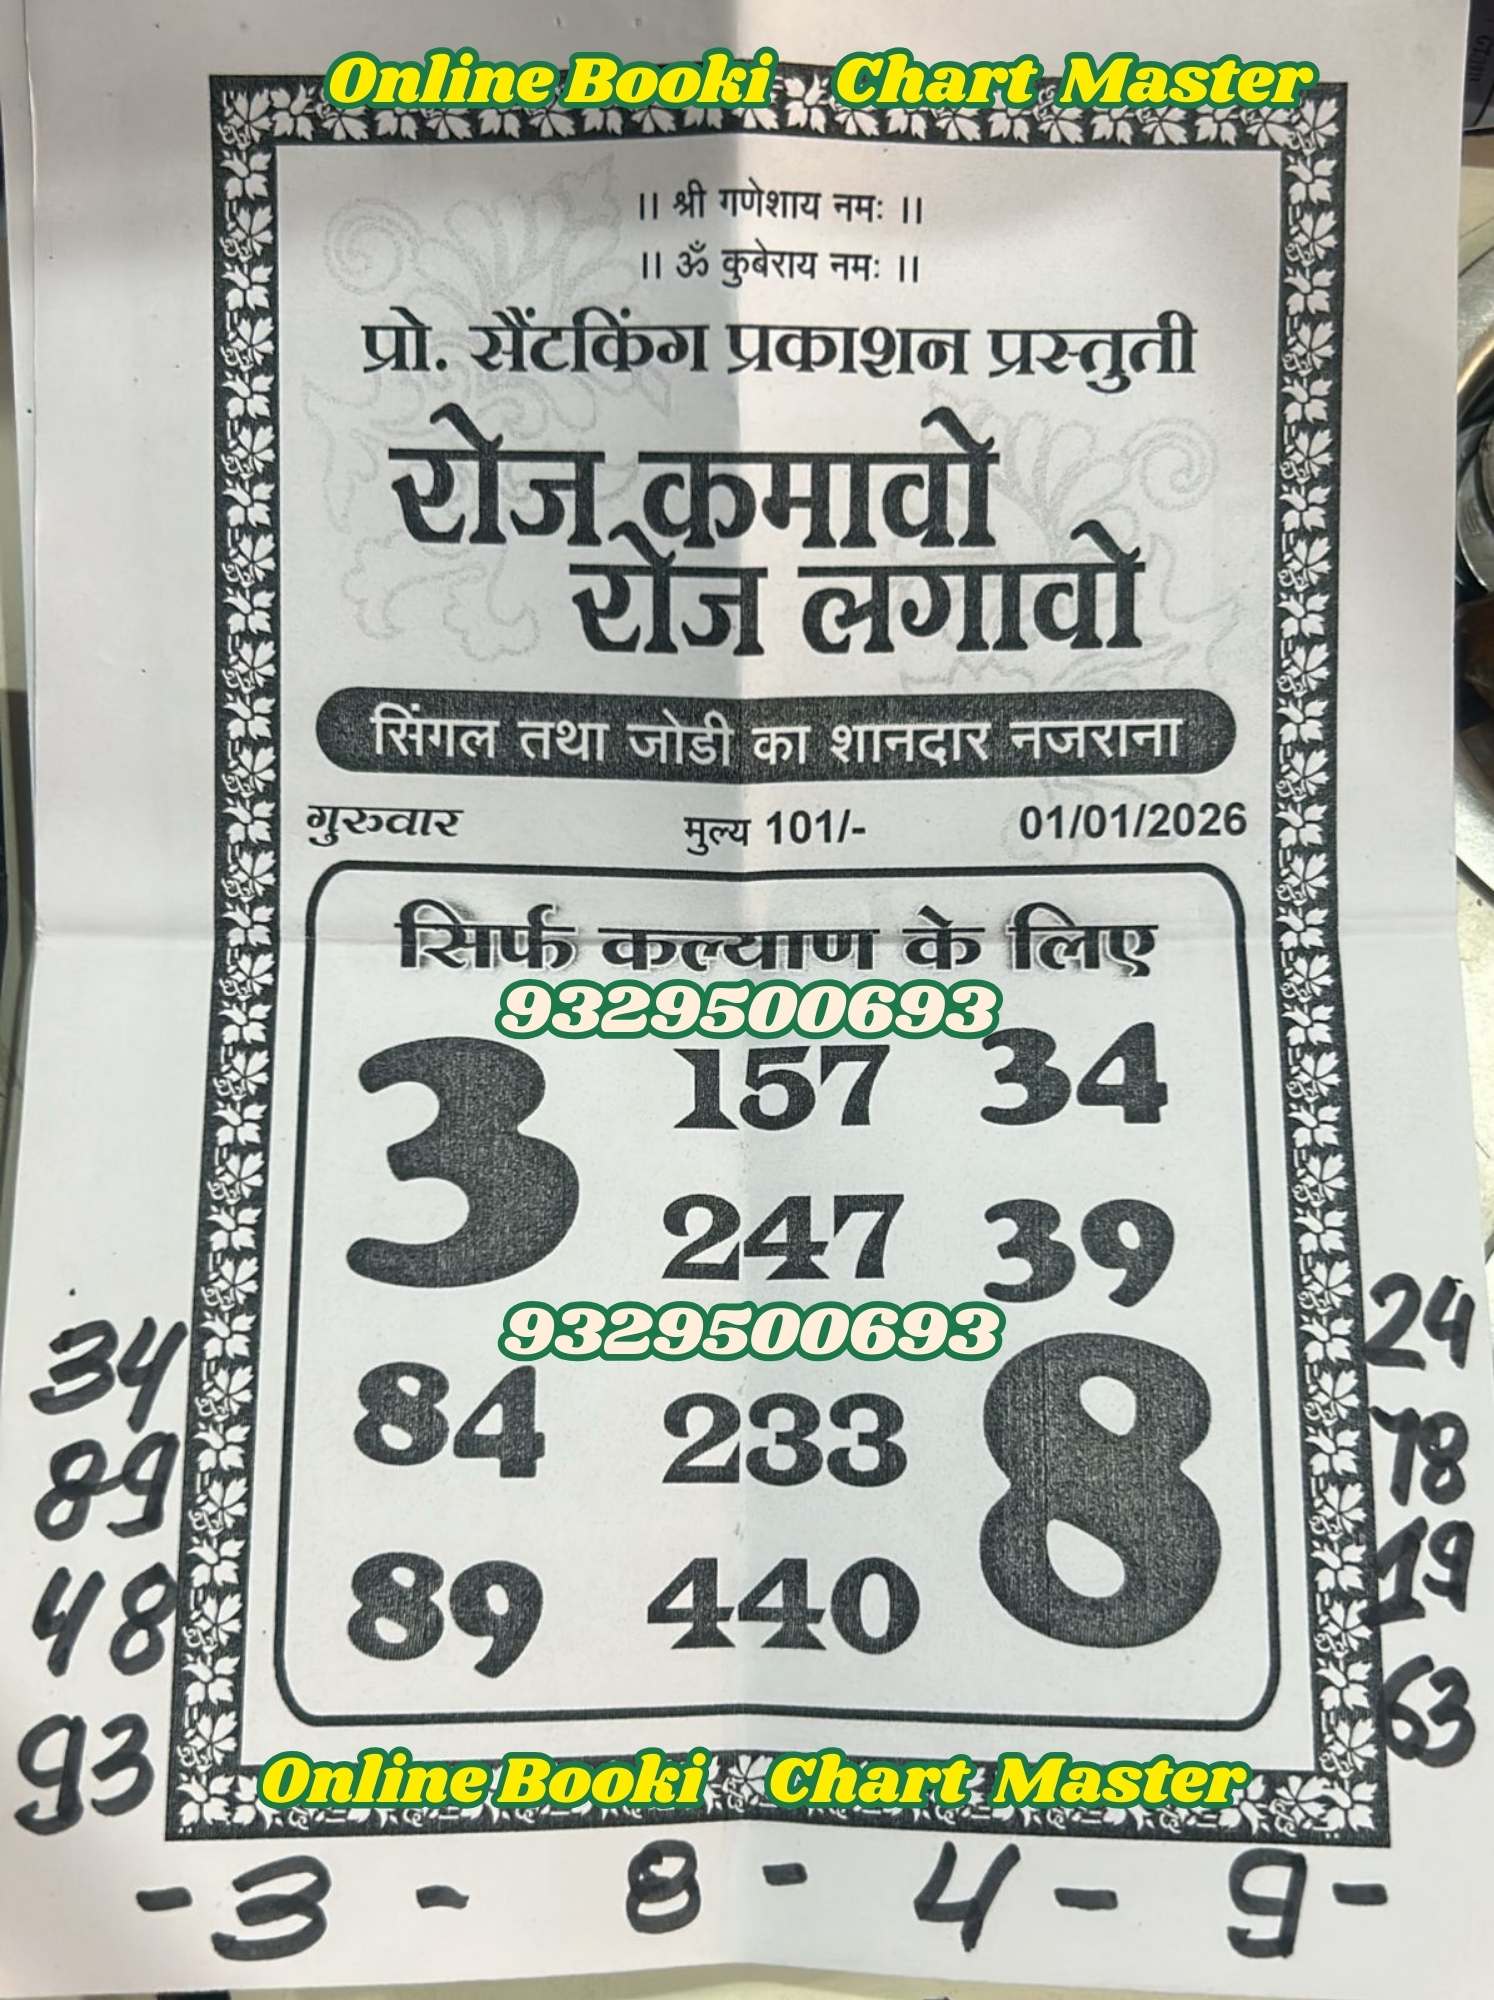 Online Booki Chart Master
।। श्री गणेशाय नमः ।।
।। ॐ कुबेराय नमः ।।
प्रो. सैंटकिंग प्रकाशन प्रस्तुती
रोज कमावो
रोज लगावो
सिंगल तथा जोडी का शानदार नजराना
गुरुवार मुल्य 101/- 01/01/2026
सिर्फ कल्याण के लिए
9329500693
3 157 34
247 39
9329500693
84 233 8
89 440
34
89
48
93
24
78
19
63
Online Booki Chart Master
- 3 - 8 - 4 - 9 -